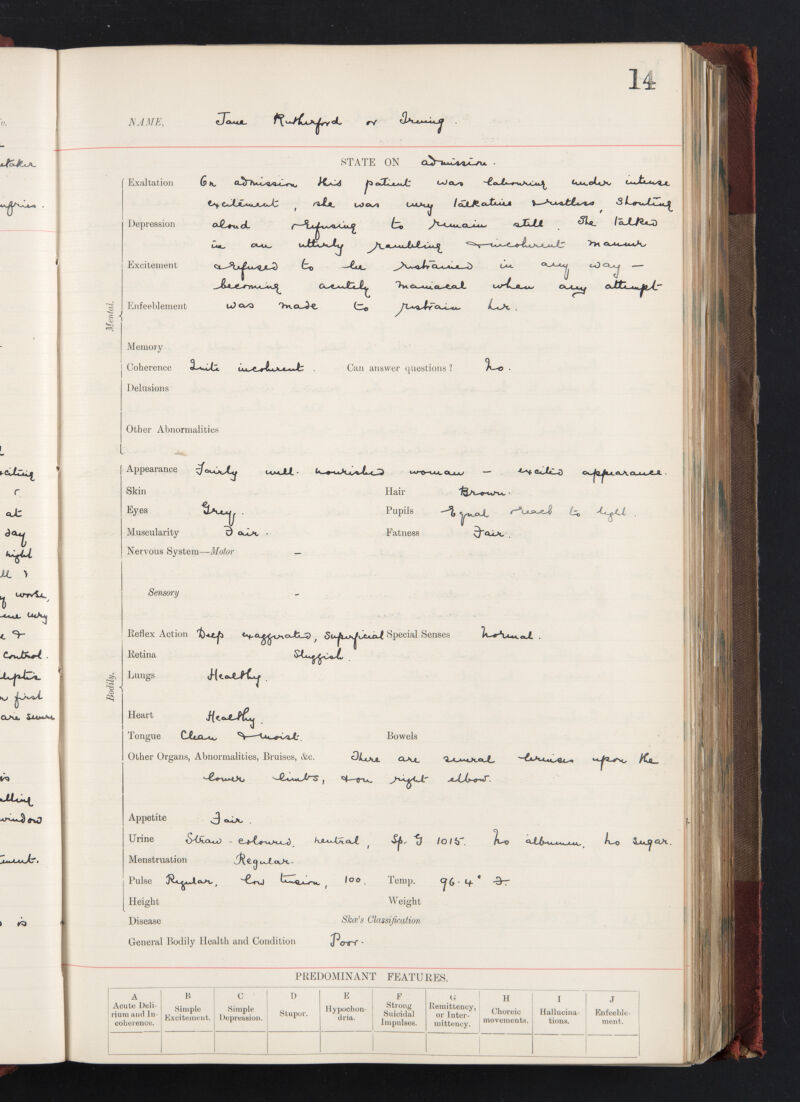 14
NAME, Jane Rutherford or Irving.
STATE ON admission.
Mental.
Exaltation On admission this patient was labouring under intense
excitement, she was very talkative & restless, shouting
Depression aloud & refusing to remain still. She talked
in an utterly rambling & incoherent manner
Excitement & refused to be restrained in any way —
becoming acutely maniacal when any attempt
Enfeeblement was made to restrain her.
Memory
Coherence Quite incoherent. Can answer questions? No.
Delusions
Other Abnormalities
Bodily.
Appearance Fairly well-nourished woman — excited appearance.
Skin Hair Brown.
Eyes Grey. Pupils Equal & react to light.
Muscularity Fair. Fatness Fair.
Nervous System—Motor –
Sensory –
Reflex Action Deep exaggerated, Superficial Special Senses Normal.
Retina Sluggish.
Lungs Healthy.
Heart Healthy.
Tongue Clean & moist. Bowels
Other Organs, Abnormalities, Bruises, &c. There are several bruises upon the
lower limbs, & on right elbow.
Appetite Fair.
Urine Straw-coloured, neutral, Sp. G 1015. No albumen. No sugar.
Menstruation Regular.
Pulse Regular, low tension, 100. Temp. 96.4° F.
Height Weight
Disease Skae's Classification
General Bodily Health and Condition Poor.
PREDOMINANT FEATURES.
A B C D E F G H I J
Acute Deli-
rium and In-
coherence.
Simple
Excitement.
Simple
Depression.
Stupor.
Hypochon-
dria.
Strong
Suicidal
Impulses.
Remittency,
or Inter-
mittency.
Choreic
movements.
Hallucina-
tions.
Enfeeble-
ment.